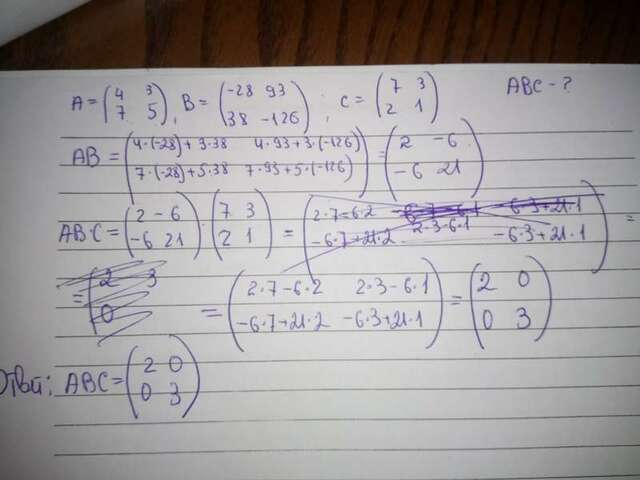 A = (4 3
7 5), B = (-28 93
38 -126); C = (7 3
2 1) ABC - ?
AB = (4·(-28)+3·38 4·93+3·(-126)
7·(-28)+5·38 7·93+5·(-126)) = (2 -6
-6 21)
ABC = (2 -6
-6 21) · (7 3
2 1) =
= (2·7-6·2 2·3-6·1
-6·7+21·2 -6·3+21·1) = (2 0
0 3)
Ответ: ABC = (2 0
0 3)